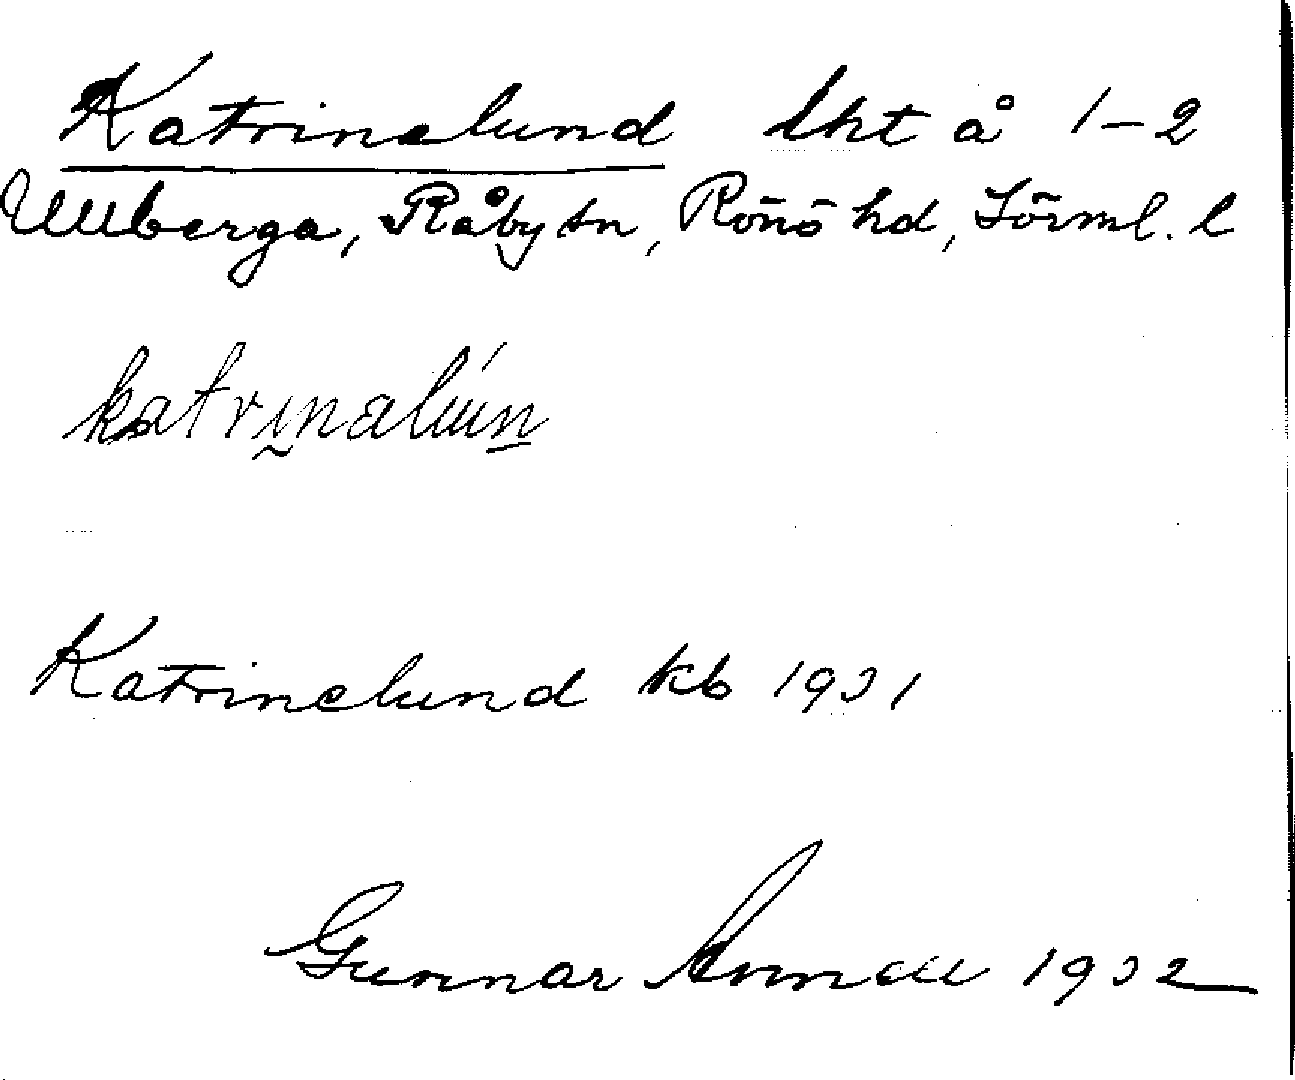 Katrinelund lht å 1-2
Ullberga, Råby sn, Rönö hd, Sörml. l
katrinalún
Katrinelund kb 1931
Gunnar 1932